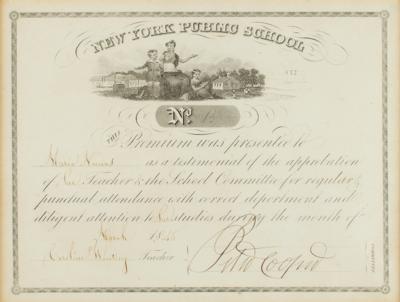 NEW YORK PUBLIC SCHOOL
No.
THIS
Premium was presented to
as a testimonial of the approbation
of her Teacher & the School Committee for regular &
punctual attendance with correct deportment and
diligent attention to her studies during the month of
March 18
Caroline Teacher
Peter Cooper